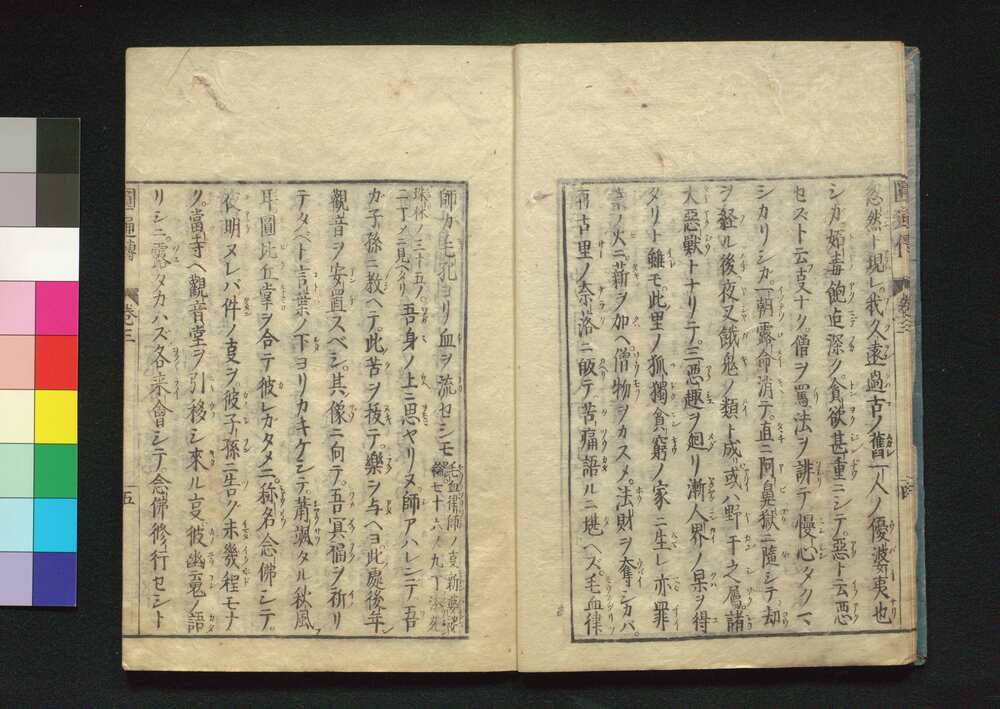 忽然ト現レ我久遠尚古ノ舊一人ノ優婆夷也
シカ妬毒飽迄深ク貪欲甚重ニシテ惡ト云惡
セズト云支ナク僧ヲ罵法ヲ誹テ慢心タクマ
シカリシカ一朝露命消テ直ニ阿鼻獄ニ隨シテ却
ヲ経ル後夜叉餓鬼ノ類ト成或ハ野干之属諸
大惡獸トナリテ三惡趣ヲ廻リ漸人界ノ果ヲ得
タリト雖モ此里ノ狐獨貪窮ノ家ニ生レ亦罪
ノ火ニ薪ヲ加ヘ僧物ヲカスメ法財ヲ奪シカバ
再古里ノ奈落ニ皈テ苦痛語ルニ堪ヘズ毛血律
師カ毛孔ヨリ血ヲ流セシモ
毛血律師ノ支新
十六ノ九丁
珠林ノ三十五ノ
二丁ノニ見ヘタリ
吾身ノ上ニ思ヤリヌ師アハレンデ吾
カ子孫ニ教ヘテ此苦ヲ抜テ樂シヲ与ヘヨ此處後年
觀音ヲ安置スベシ其像ニ向テ吾冥福ヲ祈リ
テタベト言葉ノ下ヨリカキケシテ蕭颯タル秋風
耳圓比丘掌ヲ合テ彼レカタメニ称名念佛シテ
夜明ヌレバ件ノ支ヲ彼子孫ニ告ク未幾程モナ
ク當寺ヘ觀音堂ヲ引移シ來ル支彼幽霊ノ語
リシニ露タカハズ各來會シテ念佛修行セシト
圓通傳
卷三
五